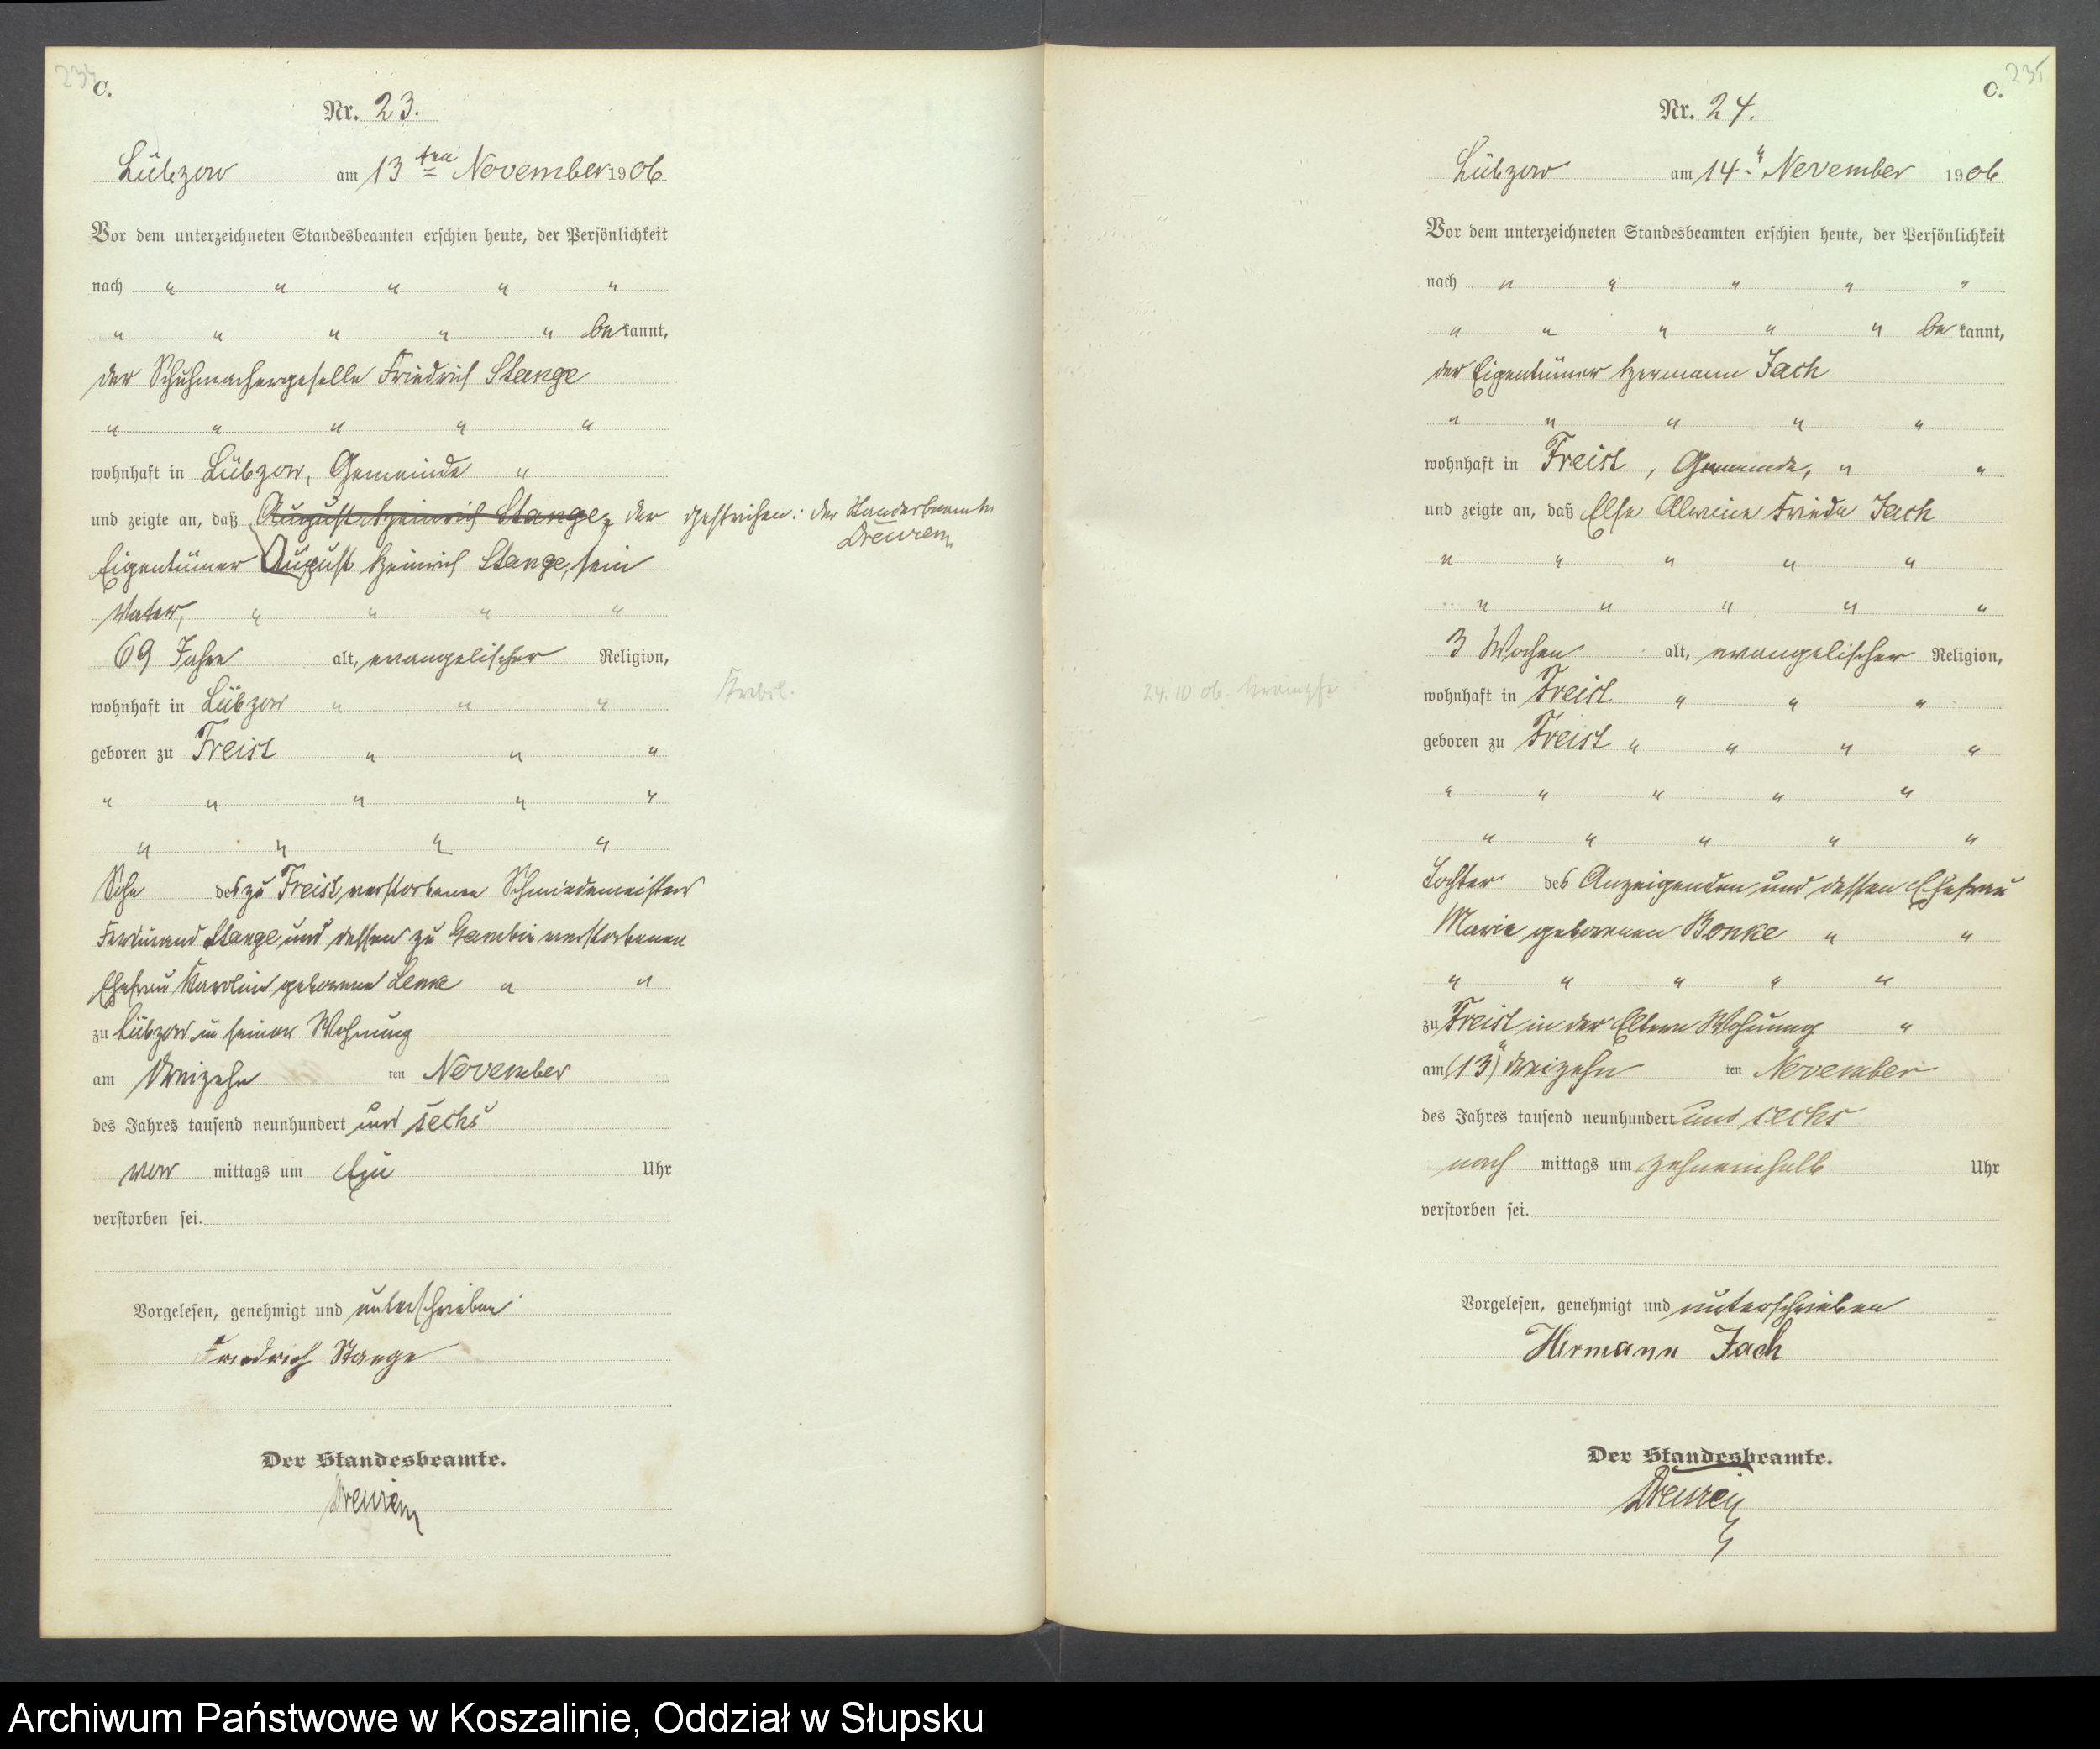 C.
Nr. 23.
Lübzow am 13ten November 1906
Vor dem unterzeichneten Standesbeamten erschien heute, der Persönlichkeit
nach " " " " "
" " " " " bekannt,
der Schuhmachergeselle Friedrich Stange
" " " " "
wohnhaft in Lübzow, Gemeinde "
und zeigte an, daß August Heinrich Stange, der gestrichen: der Standesbeamte
Eigentümer August Heinrich Stange, sein
Vater, " " " "
69 Jahre alt, evangelischer Religion,
wohnhaft in Lübzow " " "
geboren zu Freist " " "
" " " " "
" " " "
Sohn des zu Freist verstorbenen Schmiedemeisters
Ferdinand Stange und dessen zu Gambin verstorbenen
Ehefrau Karoline geborenen " "
zu Lübzow in seiner Wohnung
am dreizehn ten November
des Jahres tausend neunhundert und sechs
vor mittags um Ein Uhr
verstorben sei.
Vorgelesen, genehmigt und unterschrieben
Friedrich Stange
Der Standesbeamte.
235
C.
Nr. 24.
Lübzow am 14" November 1906
Vor dem unterzeichneten Standesbeamten erschien heute, der Persönlichkeit
nach " " " " "
" " " " " bekannt,
der Eigentümer Hermann Jach
" " " " "
wohnhaft in Freist, Gemeinde, " "
und zeigte an, daß Else Alwine Frieda Jach
" " " " "
" " " " "
3 Wochen alt, evangelischer Religion,
24.10.06. Krämpfe
wohnhaft in Freist " " "
geboren zu Freist " " " "
" " " " "
" " " " "
Tochter des Anzeigenden und dessen Ehefrau
Marie geborenen Bonke " "
" " " " "
zu Freist in der Eltern Wohnung "
am (13") dreizehn ten November
des Jahres tausend neunhundert und sechs
nach mittags um zehneinhalb Uhr
verstorben sei.
Vorgelesen, genehmigt und unterschrieben
Hermann Jach
Der Standesbeamte.
Archiwum Państwowe w Koszalinie, Oddział w Słupsku